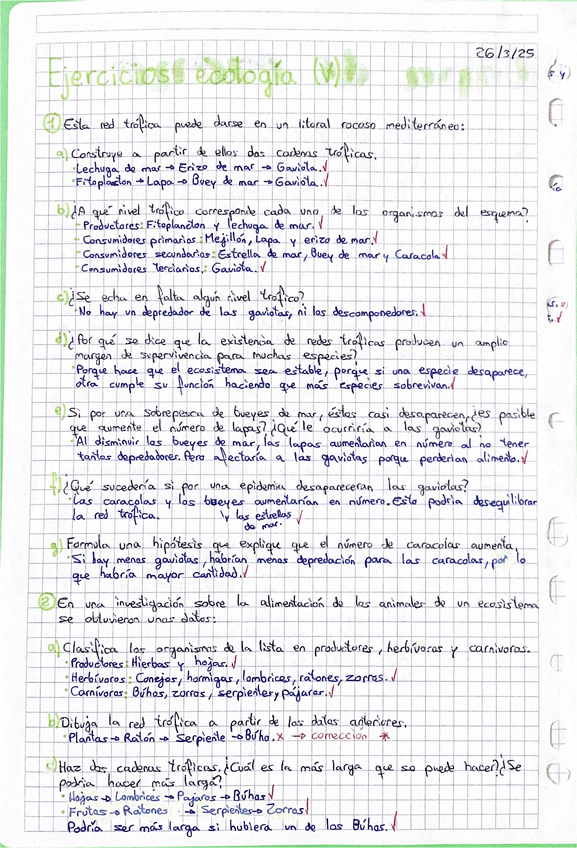 26/3/25
Ejercicios ecología (V)
① Esta red trófica puede darse en un litoral rocoso mediterráneo:
a) Construye a partir de ellos dos cadenas tróficas.
· Lechuga de mar → Erizo de mar → Gaviota. √
· Fitoplancton → Lapa → Buey de mar → Gaviota. √
b) ¿A qué nivel trófico corresponde cada uno de los organismos del esquema?
- Productores: Fitoplancton y lechuga de mar. √
- Consumidores primarios: Mejillón, Lapa y erizo de mar. √
- Consumidores secundarios: Estrella de mar, Buey de mar y Caracola √
- Consumidores Terciarios.: Gaviota. √
c) ¿Se echa en falta algún nivel trófico?
· No hay un depredador de las gaviotas, ni los descomponedores. √
d) ¿Por qué se dice que la existencia de redes tróficas producen un amplio
margen de supervivencia para muchas especies?
· Porque hace que el ecosistema sea estable, porque si una especie desaparece,
otra cumple su función haciendo que más especies sobrevivan. √
e) Si por una sobrepesca de bueyes de mar, éstos casi desaparecen, ¿es posible
que aumente el número de lapas? ¿Qué le ocurriría a las gaviotas?
· Al disminuir los bueyes de mar, las lapas aumentarían en número al no tener
tantas depredadores. Pero afectaría a las gaviotas porque perderían alimento. √
f) ¿Qué sucedería si por una epidemia desaparecieran las gaviotas?
· Las caracolas y los bueyes aumentarían en número. Esto podría desequilibrar
la red trófica. y las estrellas √
de mar.
g) Formula una hipótesis que explique que el número de caracolas aumenta.
· Si hay menos gaviotas, habrían menos depredación para las caracolas, por lo
que habría mayor cantidad. √
② En una investigación sobre la alimentación de los animales de un ecosistema
se obtuvieron unos datos:
a) Clasifica los organismos de la lista en productores, herbívoros y carnívoros.
· Productores: Hierbas y hojas. √
· Herbívoros: Conejos, hormigas, lombrices, ratones, zorros. √
· Carnívoros: Búhos, zorros, serpientes y pájaros. √
b) Dibuja la red trófica a partir de los datos anteriores.
· Plantas → Ratón → Serpiente → Búho. x → corrección *
c) Haz dos cadenas tróficas. ¿Cuál es la más larga que se puede hacer? ¿Se
podría hacer más larga?
· Hojas → Lombrices → Pajaros → Búhos √
· Frutos → Ratones → Serpientes → Zorros √
Podría ser más larga si hubiera un de los Búhos. √